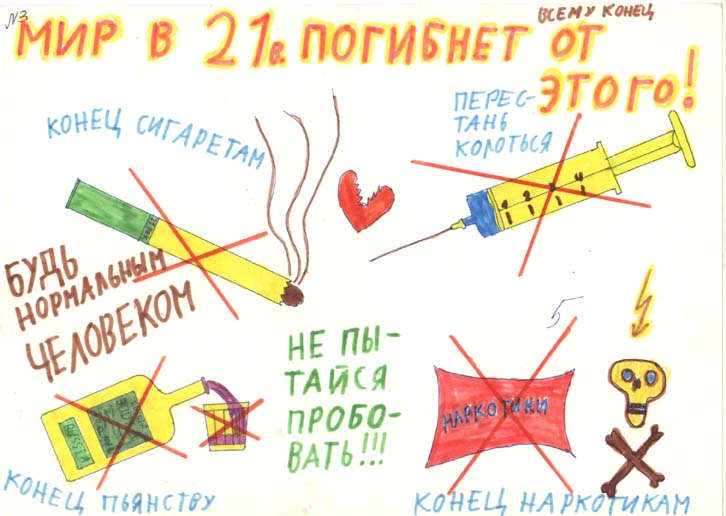 №3
ВСЕМУ КОНЕЦ
МИР В 21в. ПОГИБНЕТ ОТ
ЭТОГО!
КОНЕЦ СИГАРЕТАМ
ПЕРЕС-
ТАНЬ
КОЛОТЬСЯ
БУДЬ
НОРМАЛЬНЫМ
ЧЕЛОВЕКОМ
5
НЕ ПЫ-
ТАЙСЯ
ПРОБО-
ВАТЬ!!!
RUSSIA
НАРКОТИКИ
КОНЕЦ ПЬЯНСТВУ
КОНЕЦ НАРКОТИКАМ